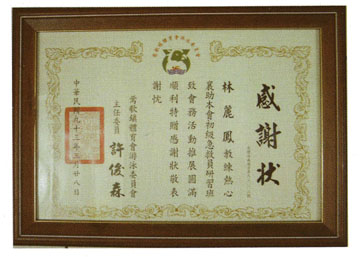 感謝狀
林麗鳳教練熱心
襄助本會初級急救員研習班
致會務活動推展圓滿
順利特贈感謝狀敬表
謝忱
鶯歌鎮體育會游泳委員會
主任委員 許俊森
中華民國九十三年三月廿八日